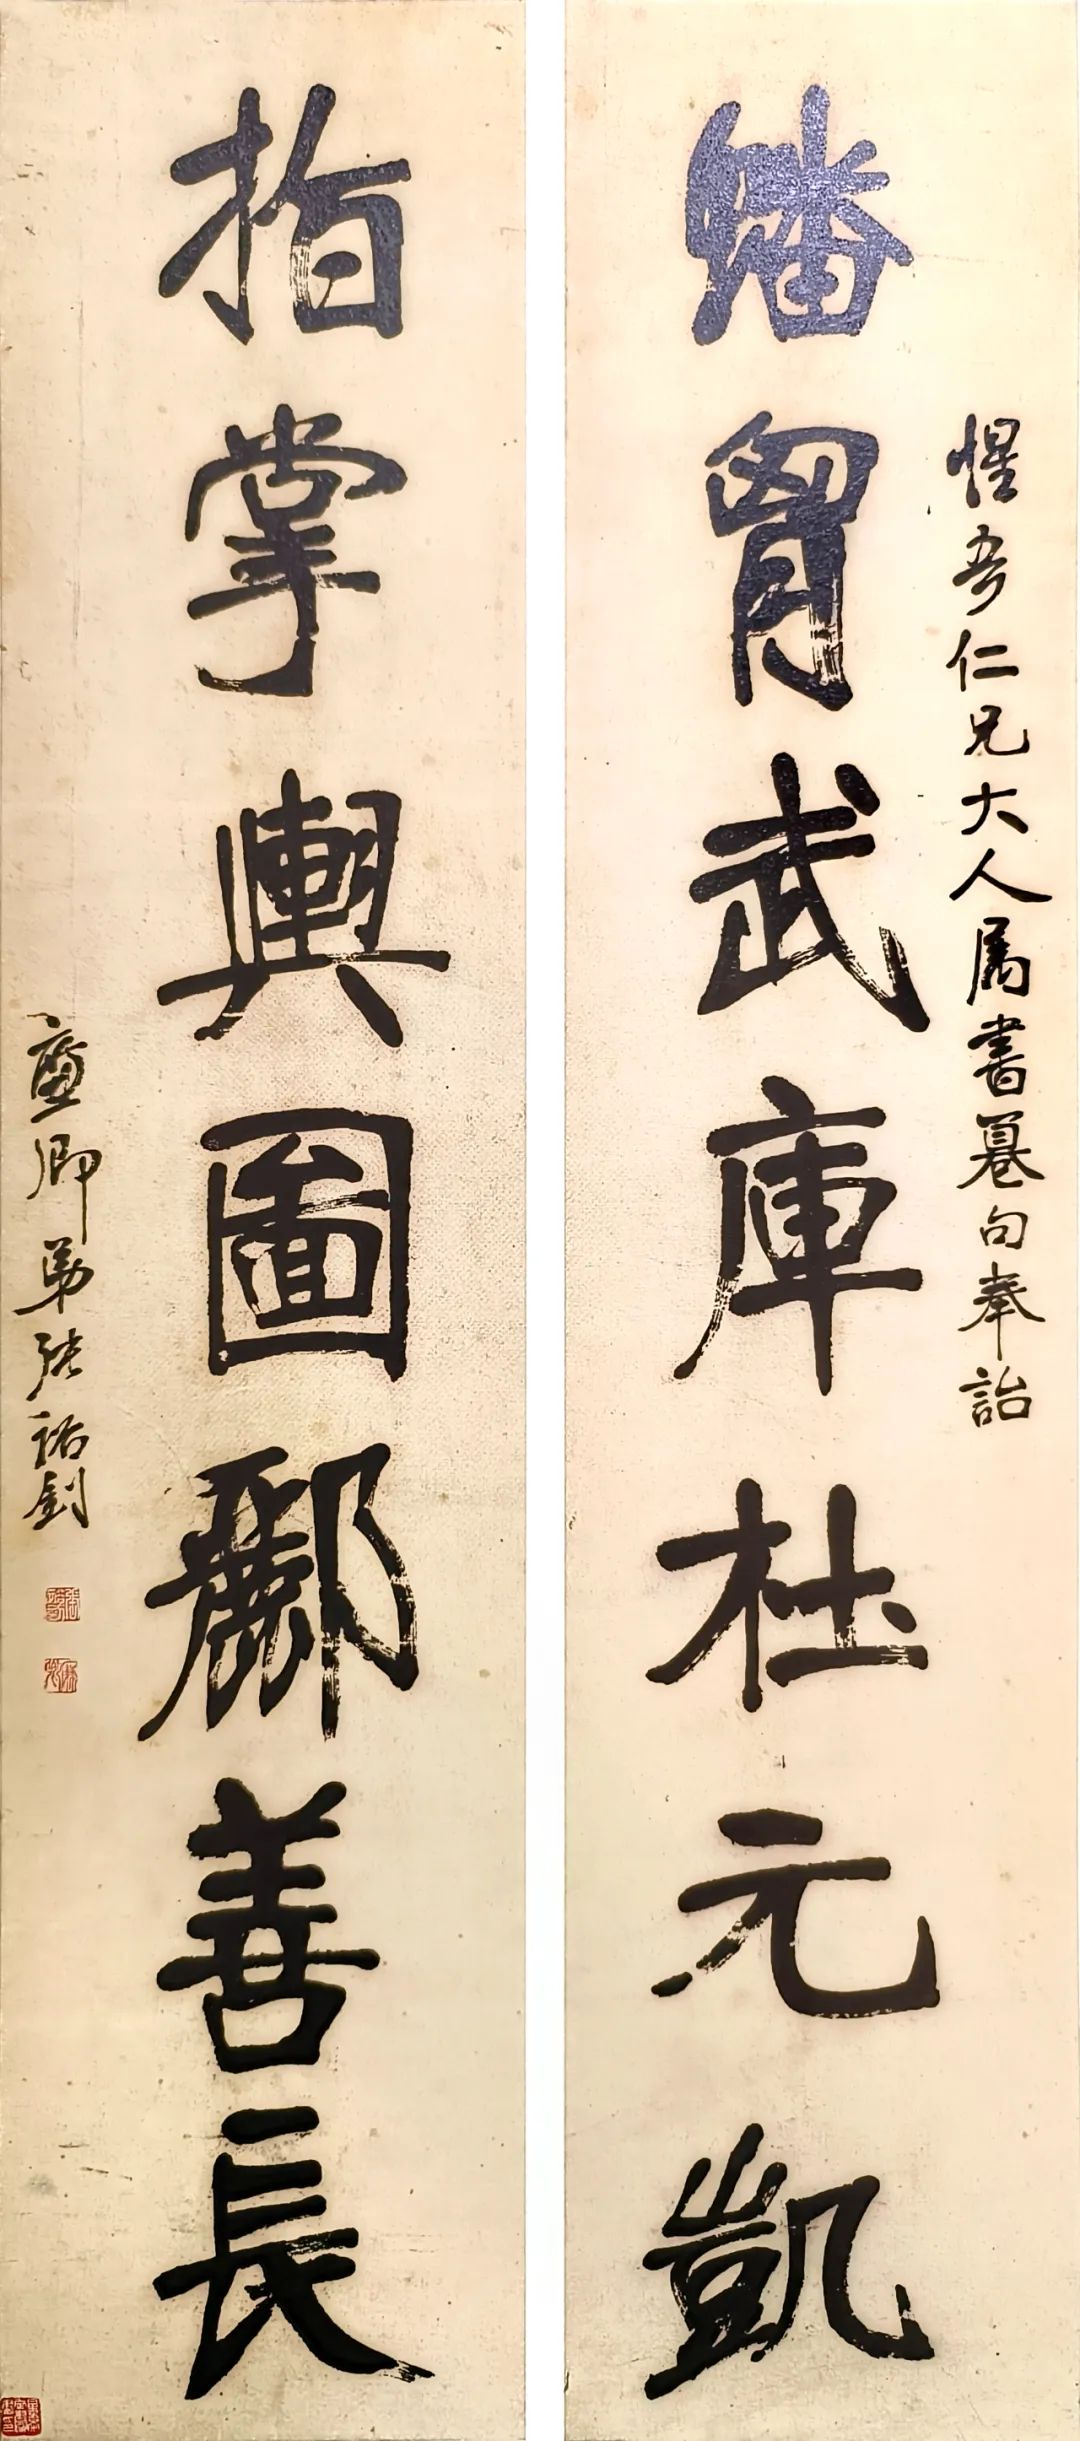 惺吾仁兄大人属書纂句奉詒
蟠胷武庫杜元凱
指掌輿圖酈善長
廉卿弟張裕釗